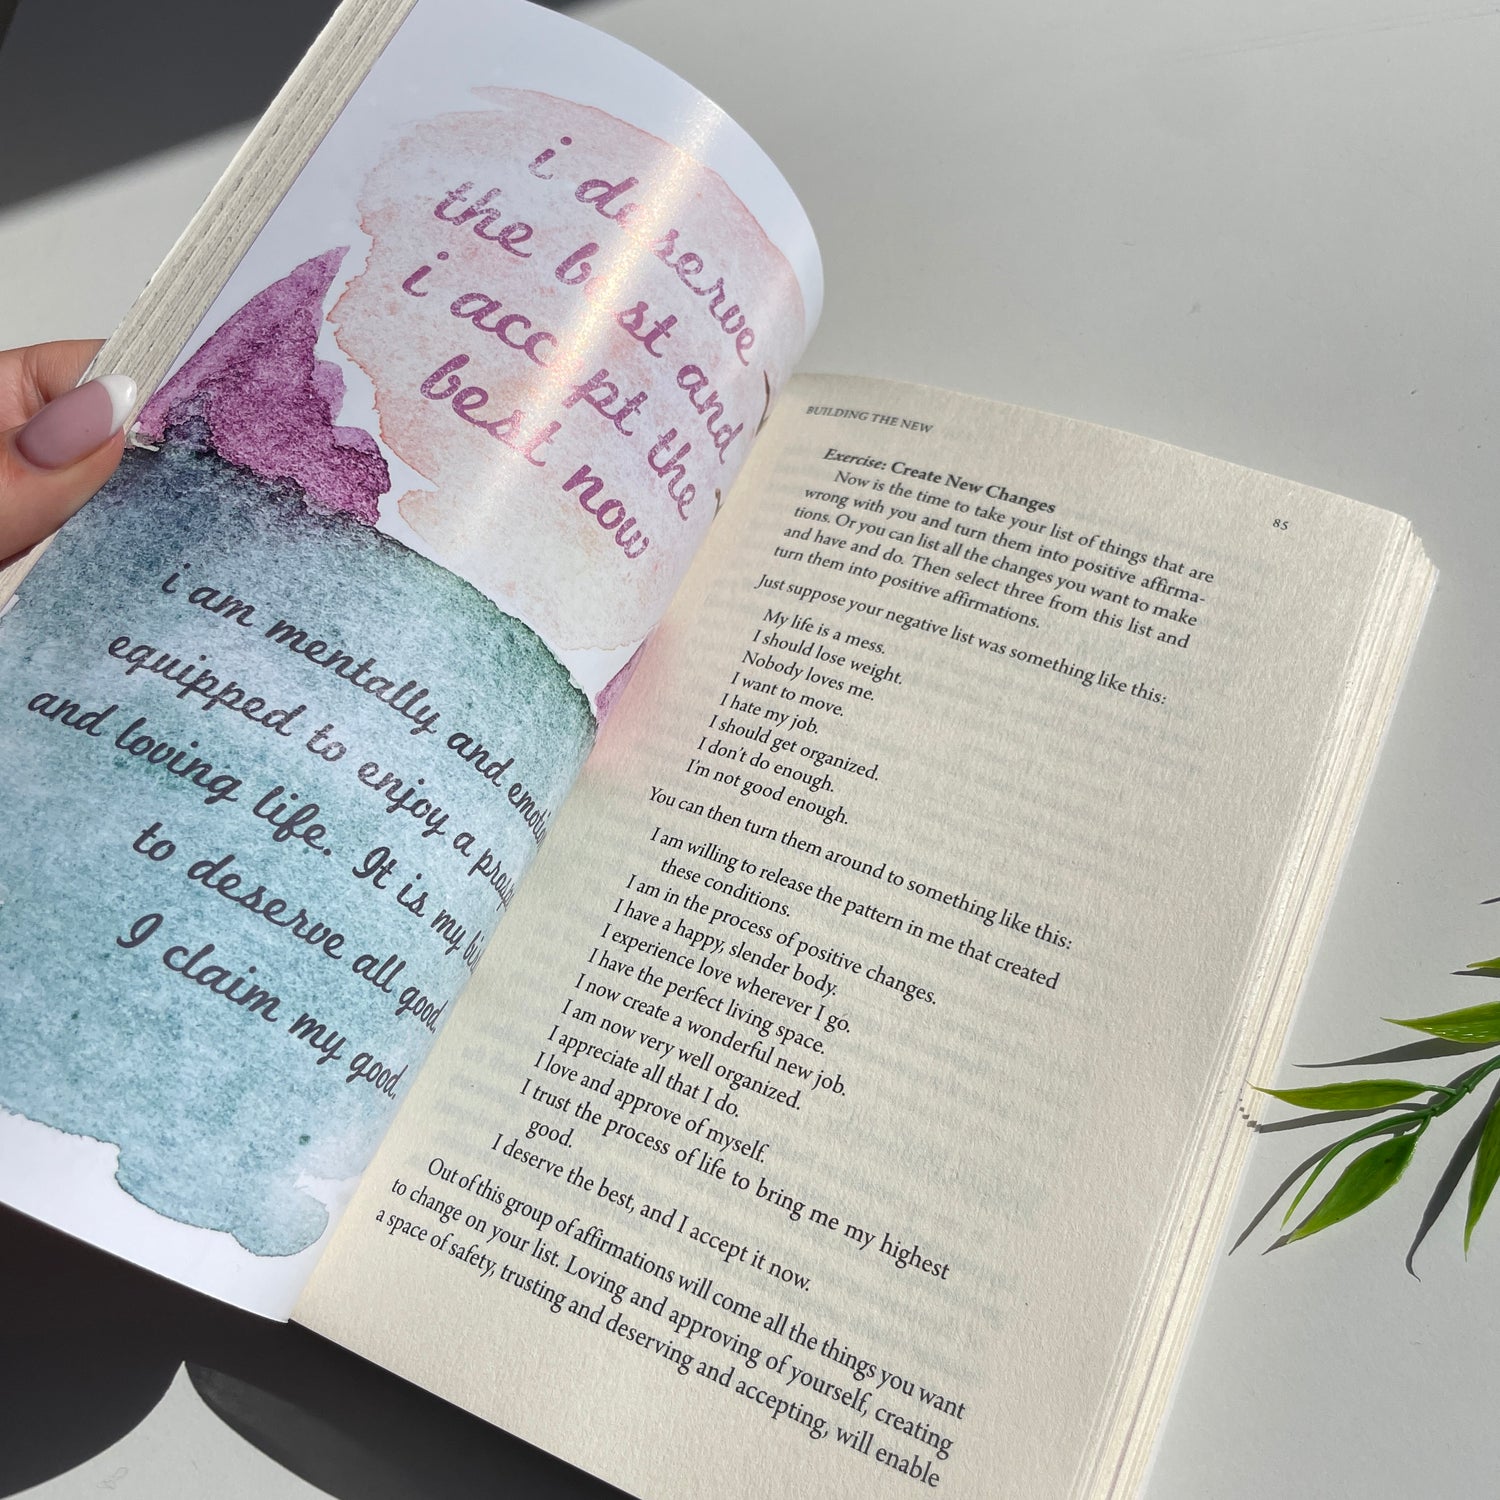 i deserve
the best and
i accept the
best now
i am mentally and
equipped to enjoy a
and loving life. It is my
to deserve all good.
I claim my good.
BUILDING THE NEW
85
Exercise: Create New Changes
Now is the time to take your list of things that are
wrong with you and turn them into positive affirma-
tions. Or you can list all the changes you want to make
and have and do. Then select three from this list and
turn them into positive affirmations.
Just suppose your negative list was something like this:
My life is a mess.
I should lose weight.
Nobody loves me.
I want to move.
I hate my job.
I should get organized.
I don't do enough.
I'm not good enough.
You can then turn them around to something like this:
I am willing to release the pattern in me that created
these conditions.
I am in the process of positive changes.
I have a happy, slender body.
I experience love wherever I go.
I have the perfect living space.
I now create a wonderful new job.
I am now very well organized.
I appreciate all that I do.
I love and approve of myself.
I trust the process of life to bring me my highest
good.
I deserve the best, and I accept it now.
Out of this group of affirmations will come all the things you want
to change on your list. Loving and approving of yourself, creating
a space of safety, trusting and deserving and accepting, will enable